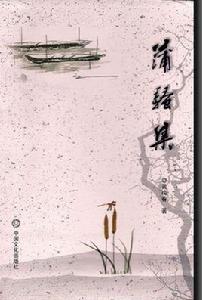 蒲骚集
著
中国文化出版社